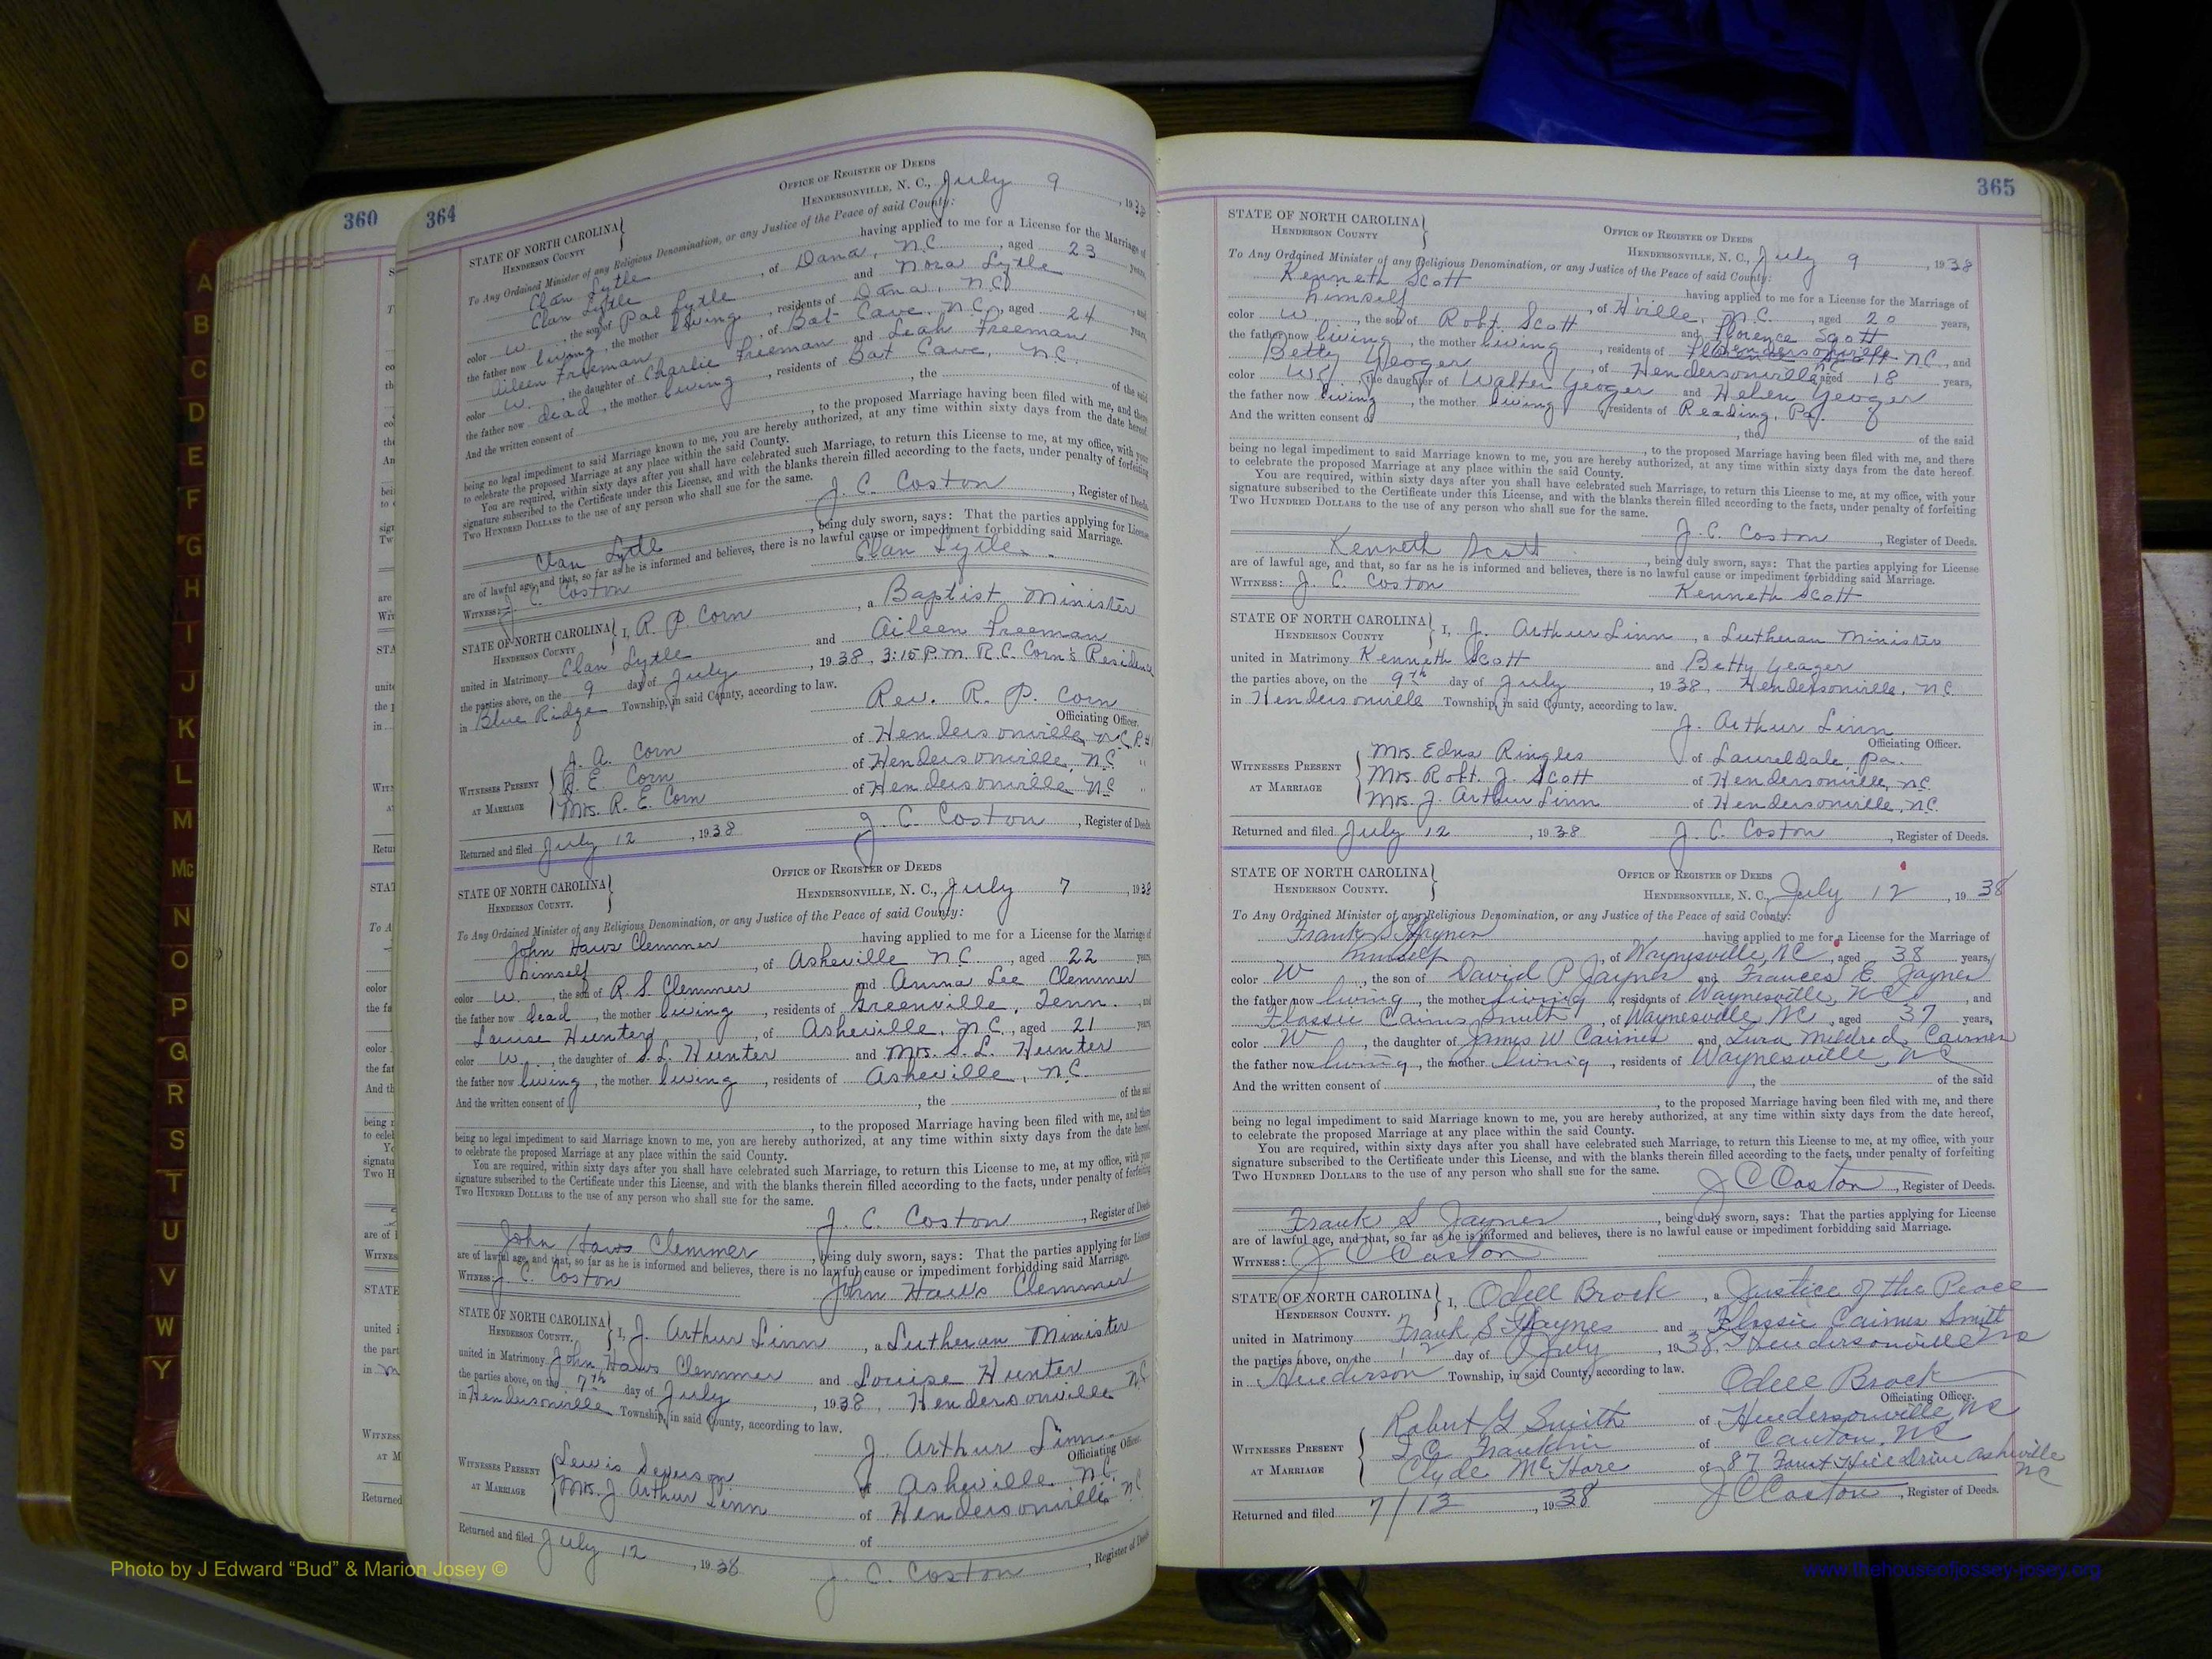 360
A
B
C
D
E
F
G
H
I
J
K
L
M
Mc
N
O
P
Q
R
S
T
U
V
W
Y
364
OFFICE OF REGISTER OF DEEDS
HENDERSONVILLE, N. C., July 9, 1938
STATE OF NORTH CAROLINA
HENDERSON COUNTY
To Any Ordained Minister of any Religious Denomination, or any Justice of the Peace of said County:
Clan Lytle having applied to me for a License for the Marriage of
Clan Lytle, of Dana, N.C., aged 23 years,
color W., the son of Pal Lytle and Nora Lytle
the father now living, the mother living, residents of Dana, N.C., and
Aileen Freeman, of Bat Cave, N.C., aged 24 years,
color W., the daughter of Charlie Freeman and Leah Freeman
the father now dead, the mother living, residents of Bat Cave, N.C.
And the written consent of , the of the said
, to the proposed Marriage having been filed with me, and there
being no legal impediment to said Marriage known to me, you are hereby authorized, at any time within sixty days from the date hereof,
to celebrate the proposed Marriage at any place within the said County.
You are required, within sixty days after you shall have celebrated such Marriage, to return this License to me, at my office, with your
signature subscribed to the Certificate under this License, and with the blanks therein filled according to the facts, under penalty of forfeiting
TWO HUNDRED DOLLARS to the use of any person who shall sue for the same.
J. C. Coston, Register of Deeds.
Clan Lytle, being duly sworn, says: That the parties applying for License
are of lawful age, and that, so far as he is informed and believes, there is no lawful cause or impediment forbidding said Marriage.
WITNESS: J. C. Coston Clan Lytle.
STATE OF NORTH CAROLINA
HENDERSON COUNTY
I, R. P. Corn, a Baptist Minister
united in Matrimony Clan Lytle and Aileen Freeman
the parties above, on the 9 day of July, 1938, 3:15 P.M. R.C. Corn's Residence
in Blue Ridge Township, in said County, according to law.
Rev. R. P. Corn
Officiating Officer.
WITNESSES PRESENT AT MARRIAGE
J. A. Corn of Hendersonville, N.C.
R. E. Corn of Hendersonville, N.C.
Mrs. R. E. Corn of Hendersonville N.C.
Returned and filed July 12, 1938 J. C. Coston, Register of Deeds
OFFICE OF REGISTER OF DEEDS
STATE OF NORTH CAROLINA
HENDERSON COUNTY.
HENDERSONVILLE, N. C., July 7, 1938
To Any Ordained Minister of any Religious Denomination, or any Justice of the Peace of said County:
John Haws Clemmer having applied to me for a License for the Marriage of
himself, of Asheville N.C., aged 22 years,
color W., the son of R. S. Clemmer and Anna Lee Clemmer
the father now dead, the mother living, residents of Greenville, Tenn., and
Louise Hunter, of Asheville, N.C., aged 21 years,
color W., the daughter of S. L. Hunter and Mrs. S. L. Hunter
the father now living, the mother living, residents of Asheville, N.C.
And the written consent of , the of the said
, to the proposed Marriage having been filed with me, and there
being no legal impediment to said Marriage known to me, you are hereby authorized, at any time within sixty days from the date hereof,
to celebrate the proposed Marriage at any place within the said County.
You are required, within sixty days after you shall have celebrated such Marriage, to return this License to me, at my office, with your
signature subscribed to the Certificate under this License, and with the blanks therein filled according to the facts, under penalty of forfeiting
TWO HUNDRED DOLLARS to the use of any person who shall sue for the same.
J. C. Coston, Register of Deeds
John Haws Clemmer, being duly sworn, says: That the parties applying for License
are of lawful age, and that, so far as he is informed and believes, there is no lawful cause or impediment forbidding said Marriage.
WITNESS: J. C. Coston John Haws Clemmer
STATE OF NORTH CAROLINA
HENDERSON COUNTY.
I, J. Arthur Linn, a Lutheran Minister
united in Matrimony John Haws Clemmer and Louise Hunter
the parties above, on the 7th day of July, 1938, Hendersonville N.C.
in Hendersonville Township, in said County, according to law.
J. Arthur Linn
Officiating Officer.
WITNESSES PRESENT AT MARRIAGE
Lewis of Asheville N.C.
Mrs. J. Arthur Linn of Hendersonville N.C.
of
Returned and filed July 12, 1938 J. C. Coston, Register of Deeds
365
STATE OF NORTH CAROLINA
HENDERSON COUNTY
OFFICE OF REGISTER OF DEEDS
HENDERSONVILLE, N. C., July 9, 1938
To Any Ordained Minister of any Religious Denomination, or any Justice of the Peace of said County:
Kenneth Scott having applied to me for a License for the Marriage of
himself, of H'ville, N.C., aged 20 years,
color W., the son of Robt. Scott and Florence Scott
the father now living, the mother living, residents of Hendersonville N.C., and
Betty Yeoger, of Hendersonville N.C. aged 18 years,
color W, the daughter of Walter Yeoger and Helen Yeoger
the father now living, the mother living residents of Reading, Pa.
And the written consent of
, the of the said
, to the proposed Marriage having been filed with me, and there
being no legal impediment to said Marriage known to me, you are hereby authorized, at any time within sixty days from the date hereof,
to celebrate the proposed Marriage at any place within the said County.
You are required, within sixty days after you shall have celebrated such Marriage, to return this License to me, at my office, with your
signature subscribed to the Certificate under this License, and with the blanks therein filled according to the facts, under penalty of forfeiting
TWO HUNDRED DOLLARS to the use of any person who shall sue for the same.
J. C. Coston, Register of Deeds.
Kenneth Scott, being duly sworn, says: That the parties applying for License
are of lawful age, and that, so far as he is informed and believes, there is no lawful cause or impediment forbidding said Marriage.
WITNESS: J. C. Coston Kenneth Scott
STATE OF NORTH CAROLINA
HENDERSON COUNTY
I, J. Arthur Linn, a Lutheran Minister
united in Matrimony Kenneth Scott and Betty Yeager
the parties above, on the 9th day of July, 1938, Hendersonville, N.C.
in Hendersonville Township, in said County, according to law.
J. Arthur Linn
Officiating Officer.
WITNESSES PRESENT AT MARRIAGE
Mrs. Edna Ringles of Laureldale, Pa.
Mrs. Robt. J. Scott of Hendersonville, N.C.
Mrs. J. Arthur Linn of Hendersonville, N.C.
Returned and filed July 12, 1938 J. C. Coston, Register of Deeds.
STATE OF NORTH CAROLINA
HENDERSON COUNTY.
OFFICE OF REGISTER OF DEEDS
HENDERSONVILLE, N. C., July 12, 1938
To Any Ordained Minister of any Religious Denomination, or any Justice of the Peace of said County:
Frank S Jaynes having applied to me for a License for the Marriage of
himself, of Waynesville, NC, aged 38 years,
color W, the son of David P Jaynes and Frances E. Jaynes
the father now living, the mother living, residents of Waynesville, NC, and
Flossie Cairnes Smith, of Waynesville NC, aged 37 years,
color W, the daughter of James W Cairnes and Lura Mildred Cairnes
the father now living, the mother living, residents of Waynesville, NC
And the written consent of , the of the said
, to the proposed Marriage having been filed with me, and there
being no legal impediment to said Marriage known to me, you are hereby authorized, at any time within sixty days from the date hereof,
to celebrate the proposed Marriage at any place within the said County.
You are required, within sixty days after you shall have celebrated such Marriage, to return this License to me, at my office, with your
signature subscribed to the Certificate under this License, and with the blanks therein filled according to the facts, under penalty of forfeiting
TWO HUNDRED DOLLARS to the use of any person who shall sue for the same.
J C Coston, Register of Deeds.
Frank S Jaynes, being duly sworn, says: That the parties applying for License
are of lawful age, and that, so far as he is informed and believes, there is no lawful cause or impediment forbidding said Marriage.
WITNESS: J C Coston
STATE OF NORTH CAROLINA
HENDERSON COUNTY.
I, Odell Brock, a Justice of the Peace
united in Matrimony Frank S Jaynes and Flossie Cairnes Smith
the parties above, on the 12 day of July, 1938, Hendersonville NC
in Henderson Township, in said County, according to law.
Odell Brock
Officiating Officer.
WITNESSES PRESENT AT MARRIAGE
Robert G Smith of Hendersonville, NC
Franklin of Canton, NC
Clyde McHare of 87 Drive Asheville NC
Returned and filed 7/13, 1938 J C Coston, Register of Deeds.
Photo by J Edward “Bud” & Marion Josey ©
www.thehouseofjossey-josey.org